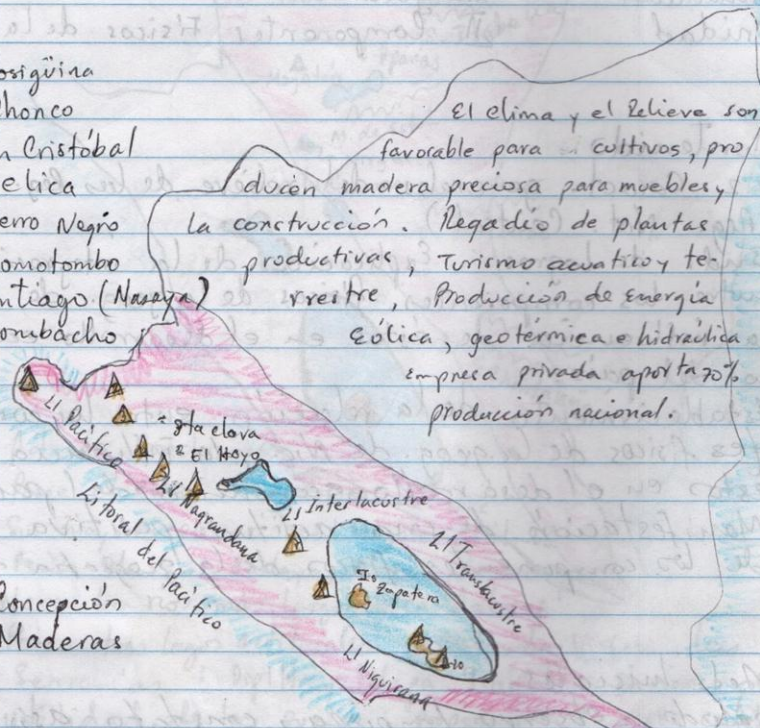 osigüina
honco
n Cristóbal
elica
erro Negro
omotombo
ntiago (Masaya)
ombacho
El clima y el Relieve son
favorable para cultivos, pro
ducen madera preciosa para muebles y
la construcción. Regadío de plantas
productivas, Turismo acuatico y te-
rrestre, Producción de energía
eólica, geotérmica e hidraúlica
Empresa privada aporta 70%
producción nacional.
Ll Pacífico
Sta clara
El Hoyo
Ll Nagrandana
Ll Interlacustre
Litoral del Pacífico
Ll Translacustre
Is Zapatera
Ll Niquirana
Concepción
Maderas